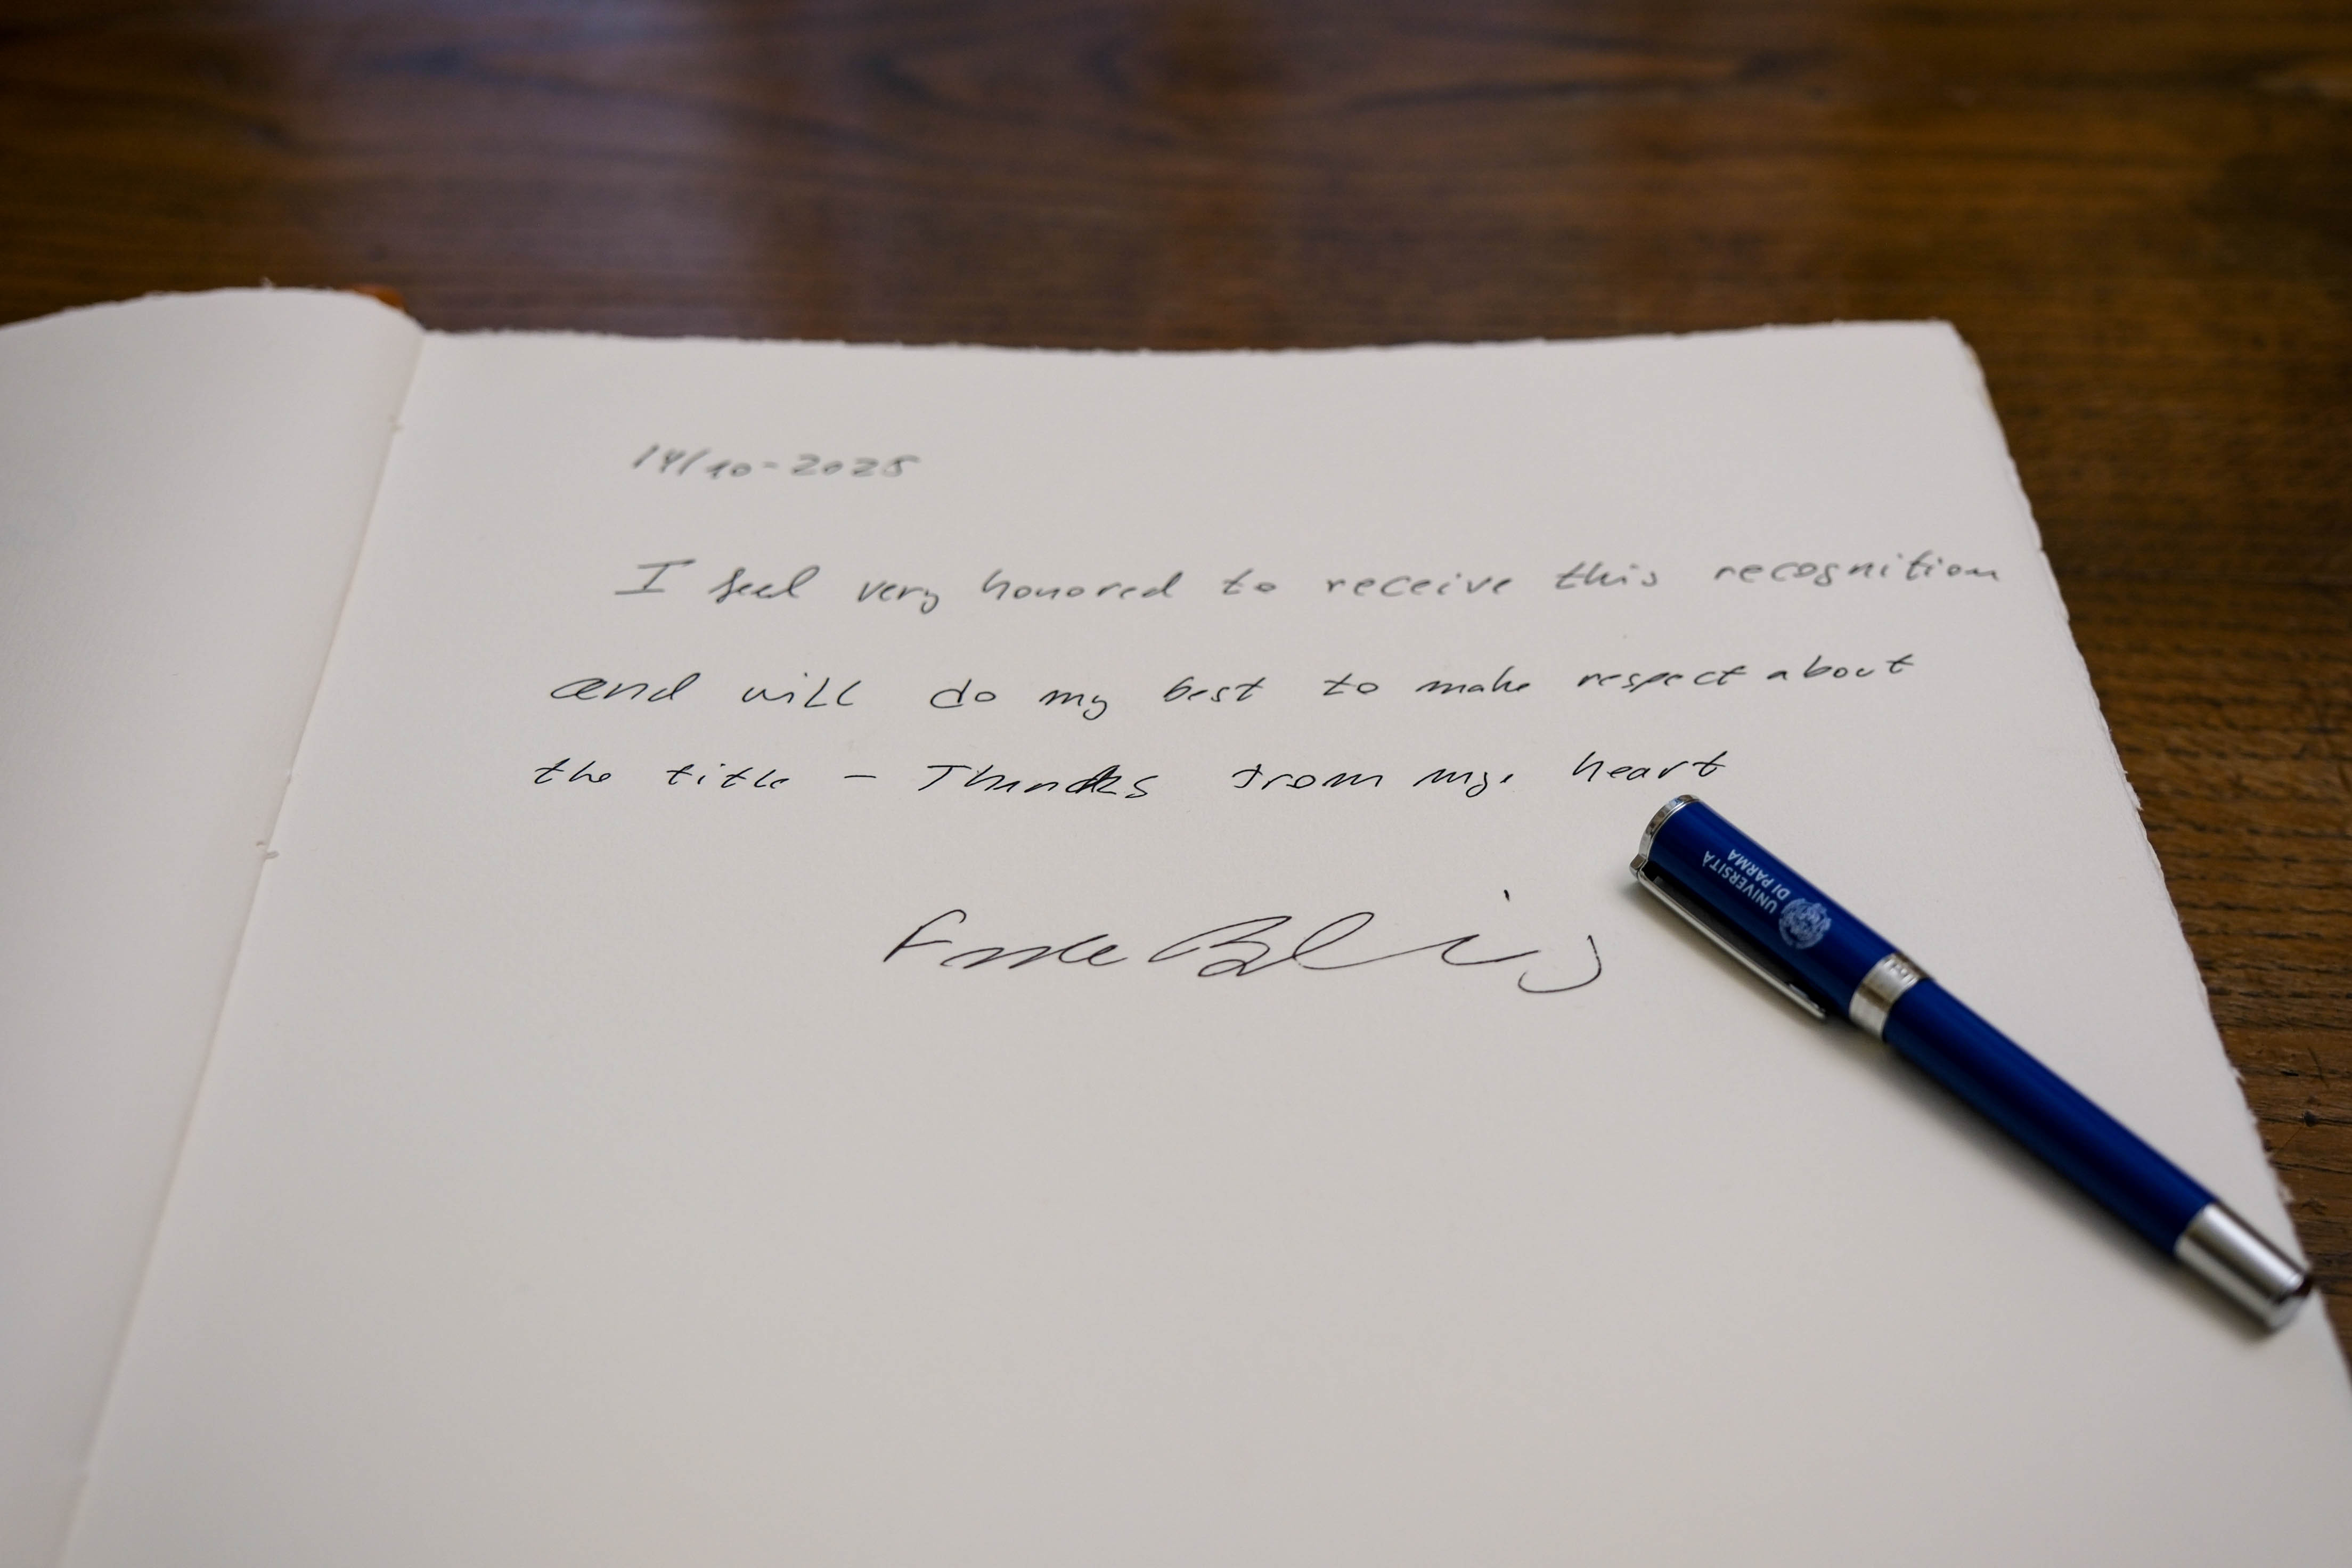 14/10-2025
I feel very honored to receive this recognition
and will do my best to make respect about
the title – Thanks from my heart
UNIVERSITÀ
DI PARMA